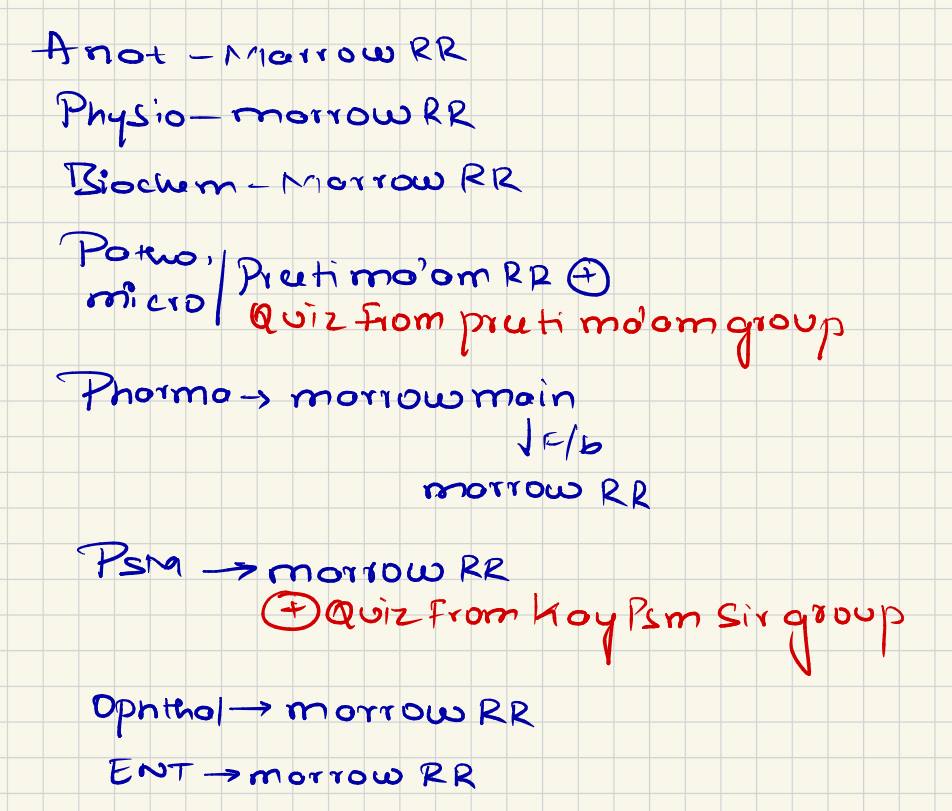 Anat - Marrow RR
Physio - marrow RR
Biochem - Marrow RR
Patho,
micro / Preeti ma'am RR ⊕
Quiz from preeti ma'am group
Pharma → marrow main
↓ F/b
marrow RR
PSM → marrow RR
⊕ Quiz from Kay Psm Sir group
Ophthal → marrow RR
ENT → marrow RR